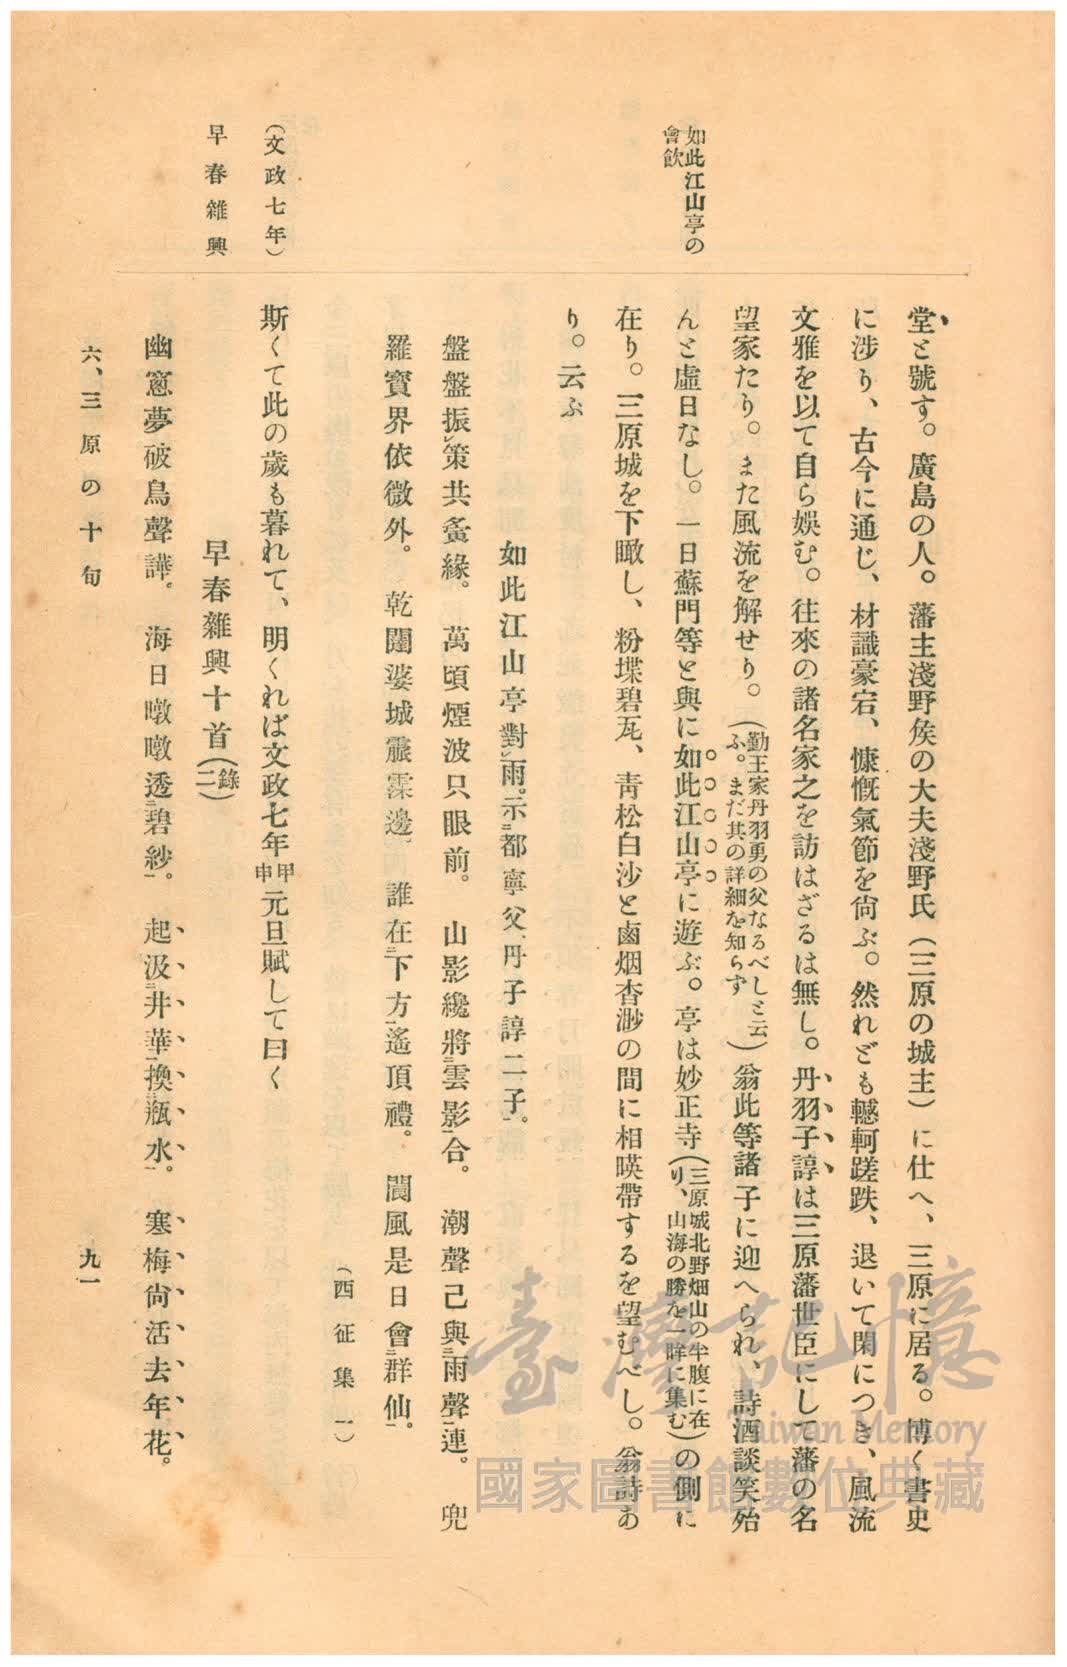 堂と號す。廣島の人。藩主淺野矦の大夫淺野氏（三原の城主）に仕へ、三原に居る。博く書史
に涉り、古今に通じ、材識豪宕、慷慨氣節を尙ぶ。然れども轗軻蹉跌、退いて閑につき、風流
文雅を以て自ら娛む。往來の諸名家之を訪はざるは無し。丹羽子諄は三原藩世臣にして藩の名
望家たり。また風流を解せり。（勤王家丹羽勇の父なるべしと云ふ。まだ其の詳細を知らず）翁此等諸子に迎へられ、詩酒談笑殆
んと虛日なし。一日蘇門等と與に如此江山亭に遊ぶ。亭は妙正寺（三原城北野畑山の半腹に在り、山海の勝を一眸に集む）の側に
在り。三原城を下瞰し、粉堞碧瓦、靑松白沙と鹵烟杳渺の間に相暎帶するを望むべし。翁詩あ
り。云ぶ
如此江山亭の
會飮
如此江山亭對レ雨。示二都寧父、丹子諄二子一。
盤盤振レ策共夤緣。萬頃煙波只眼前。山影纔將二雲影一合。潮聲己與二雨聲一連。兜
羅寶界依微外。乾闥婆城靉霼邊。誰在二下方一遙頂禮。閬風是日會二群仙一。
（西征集一）
（文政七年）
斯くて此の歲も暮れて、明くれば文政七年甲申元旦賦して曰く
早春雜興
早春雜興十首（錄二）
幽窻夢破鳥聲譁。海日暾暾透二碧紗一。起汲二井華一換二瓶水一。寒梅尙活去年花。
六、三原の十旬
九一
臺灣記憶
Taiwan Memory
國家圖書館數位典藏